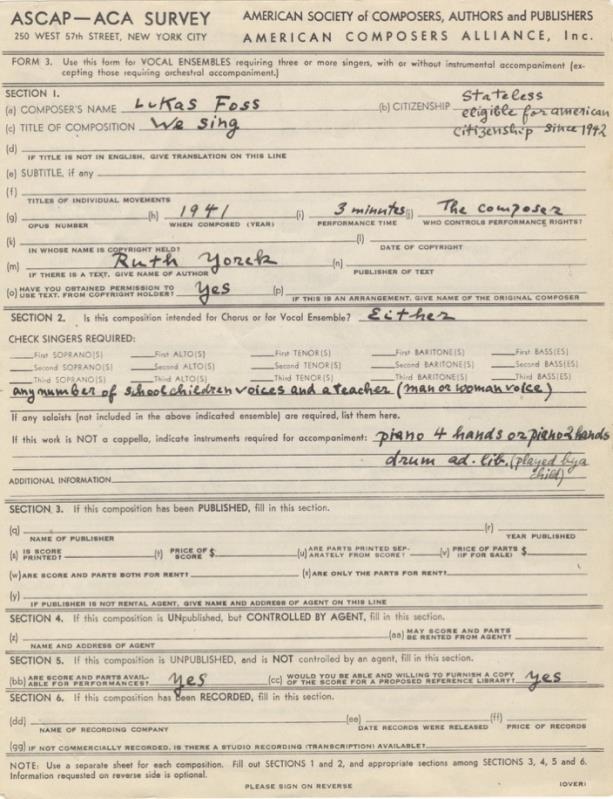 ASCAP—ACA SURVEY
250 WEST 57th STREET, NEW YORK CITY
AMERICAN SOCIETY of COMPOSERS, AUTHORS and PUBLISHERS
AMERICAN COMPOSERS ALLIANCE, Inc.
FORM 3. Use this form for VOCAL ENSEMBLES requiring three or more singers, with or without instrumental accompaniment (ex-
cepting those requiring orchestral accompaniment.)
SECTION 1.
(a) COMPOSER'S NAME Lukas Foss
(b) CITIZENSHIP Stateless
eligible for american
citizenship since 1942
(c) TITLE OF COMPOSITION We sing
(d)
IF TITLE IS NOT IN ENGLISH, GIVE TRANSLATION ON THIS LINE
(e) SUBTITLE, if any
(f)
TITLES OF INDIVIDUAL MOVEMENTS
(g) (h) 1941 (i) 3 minutes (j) The composer
OPUS NUMBER WHEN COMPOSED (YEAR) PERFORMANCE TIME WHO CONTROLS PERFORMANCE RIGHTS?
(k) (l)
IN WHOSE NAME IS COPYRIGHT HELD? DATE OF COPYRIGHT
(m) Ruth Yorck (n)
IF THERE IS A TEXT, GIVE NAME OF AUTHOR PUBLISHER OF TEXT
(o) HAVE YOU OBTAINED PERMISSION TO
USE TEXT, FROM COPYRIGHT HOLDER? Yes (p)
IF THIS IS AN ARRANGEMENT, GIVE NAME OF THE ORIGINAL COMPOSER
SECTION 2. Is this composition intended for Chorus or for Vocal Ensemble? Either
CHECK SINGERS REQUIRED:
First SOPRANO(S) First ALTO(S) First TENOR(S) First BARITONE(S) First BASS(ES)
Second SOPRANO(S) Second ALTO(S) Second TENOR(S) Second BARITONE(S) Second BASS(ES)
Third SOPRANO(S) Third ALTO(S) Third TENOR(S) Third BARITONE(S) Third BASS(ES)
any number of schoolchildren voices and a teacher (man or woman voice)
If any soloists (not included in the above indicated ensemble) are required, list them here.
If this work is NOT a cappella, indicate instruments required for accompaniment: piano 4 hands or piano 2 hands
drum ad. lib. (played by a
child)
ADDITIONAL INFORMATION
SECTION 3. If this composition has been PUBLISHED, fill in this section.
(q) (r)
NAME OF PUBLISHER YEAR PUBLISHED
(s) IS SCORE
PRINTED? (t) PRICE OF
SCORE $ (u) ARE PARTS PRINTED SEP-
ARATELY FROM SCORE? (v) PRICE OF PARTS
(IF FOR SALE) $
(w) ARE SCORE AND PARTS BOTH FOR RENT? (x) ARE ONLY THE PARTS FOR RENT?
(y)
IF PUBLISHER IS NOT RENTAL AGENT, GIVE NAME AND ADDRESS OF AGENT ON THIS LINE
SECTION 4. If this composition is UNpublished, but CONTROLLED BY AGENT, fill in this section.
(z) (aa) MAY SCORE AND PARTS
BE RENTED FROM AGENT?
NAME AND ADDRESS OF AGENT
SECTION 5. If this composition is UNPUBLISHED, and is NOT controlled by an agent, fill in this section.
(bb) ARE SCORE AND PARTS AVAIL-
ABLE FOR PERFORMANCES? Yes (cc) WOULD YOU BE ABLE AND WILLING TO FURNISH A COPY
OF THE SCORE FOR A PROPOSED REFERENCE LIBRARY? Yes
SECTION 6. If this composition has been RECORDED, fill in this section.
(dd) (ee) (ff)
NAME OF RECORDING COMPANY DATE RECORDS WERE RELEASED PRICE OF RECORDS
(gg) IF NOT COMMERCIALLY RECORDED, IS THERE A STUDIO RECORDING (TRANSCRIPTION) AVAILABLE?
NOTE: Use a separate sheet for each composition. Fill out SECTIONS 1 and 2, and appropriate sections among SECTIONS 3, 4, 5 and 6.
Information requested on reverse side is optional.
PLEASE SIGN ON REVERSE
(OVER)